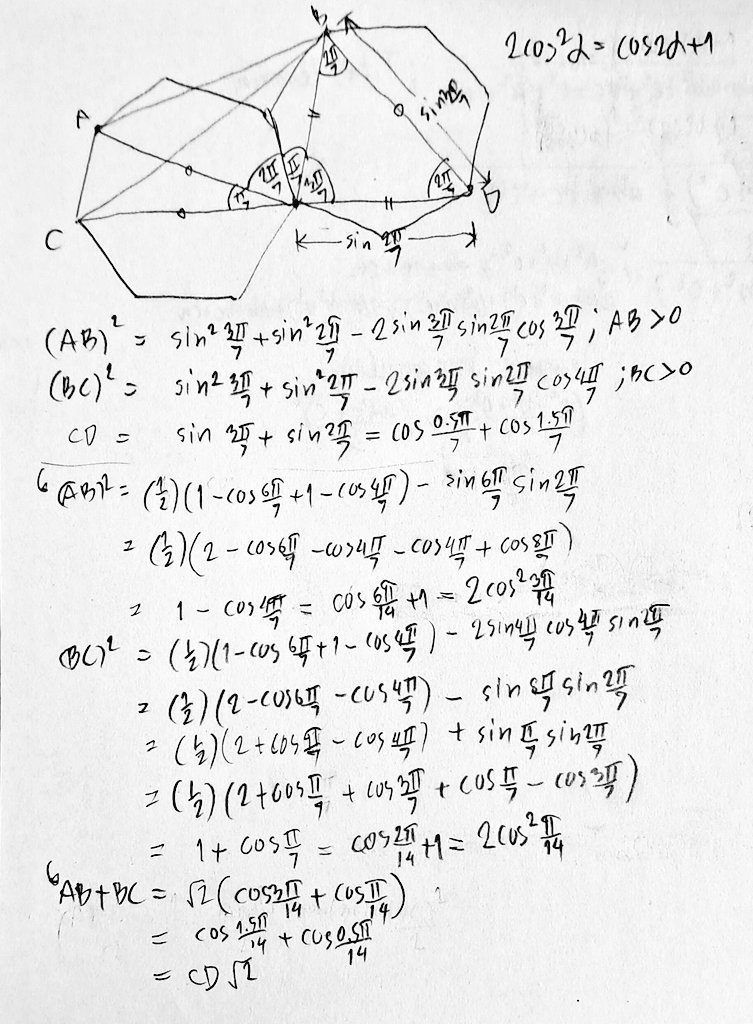 2cos²α = cos2α+1
B
2π/7
sin 3π/7
A
2π/7
π/7
3π/7
π/7
2π/7
D
C
sin 2π/7
(AB)² = sin² 3π/7 + sin² 2π/7 - 2 sin 3π/7 sin 2π/7 cos 3π/7 ; AB > 0
(BC)² = sin² 3π/7 + sin² 2π/7 - 2 sin 3π/7 sin 2π/7 cos 4π/7 ; BC > 0
CD = sin 3π/7 + sin 2π/7 = cos 0.5π/7 + cos 1.5π/7
(AB)² = (1/2)(1 - cos 6π/7 + 1 - cos 4π/7) - sin 6π/7 sin 2π/7
= (1/2)(2 - cos 6π/7 - cos 4π/7 - cos 4π/7 + cos 8π/7)
= 1 - cos 4π/7 = cos 6π/14 + 1 = 2cos² 3π/14
(BC)² = (1/2)(1 - cos 6π/7 + 1 - cos 4π/7) - 2 sin 4π/7 cos 4π/7 sin 2π/7
= (1/2)(2 - cos 6π/7 - cos 4π/7) - sin 8π/7 sin 2π/7
= (1/2)(2 + cos π/7 - cos 4π/7) + sin π/7 sin 2π/7
= (1/2)(2 + cos π/7 + cos 3π/7 + cos π/7 - cos 3π/7)
= 1 + cos π/7 = cos 2π/14 + 1 = 2cos² π/14
AB + BC = √2 (cos 3π/14 + cos π/14)
= cos 1.5π/14 + cos 0.5π/14
= CD √2